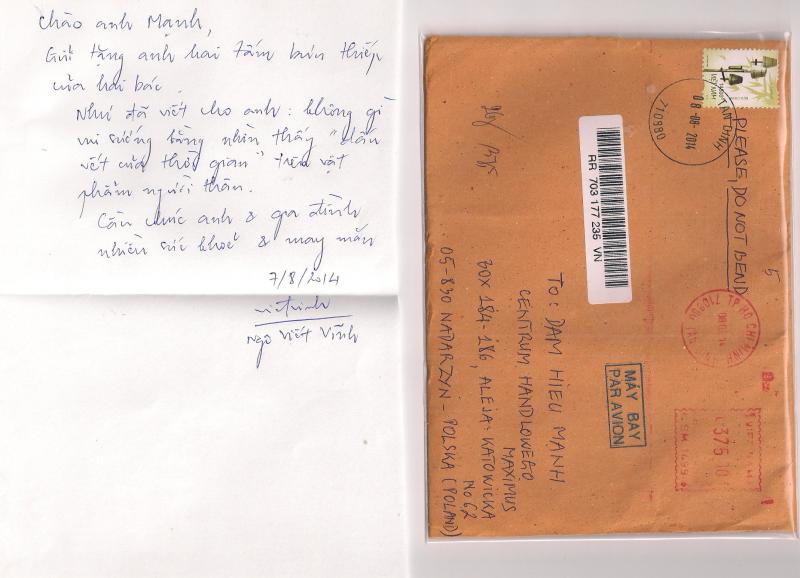 Chào anh Mạnh,
Gửi tặng anh hai tấm bưu thiếp
của hai bác.
Như đã viết cho anh: không gì
vui sướng bằng nhìn thấy "dấu
vết của thời gian" trên vật
phẩm người thân.
Cầu chúc anh & gia đình
nhiều sức khoẻ & may mắn
7/8/2014
Ngô Viết Vĩnh
VIETNAM
TAN DINH
08-08-2014
710980
PLEASE, DO NOT BEND
5
RR 703 177 235 VN
TP HO CHI MINH
MÁY BAY
PAR AVION
VIETNAM
375 10
TO: DAM HIEU MANH
CENTRUM HANDLOWEGO
MAXIMUS
BOX 184-186, ALEJA: KATOWICKA
No 62
05-830 NADARZYN - POLSKA (POLAND)